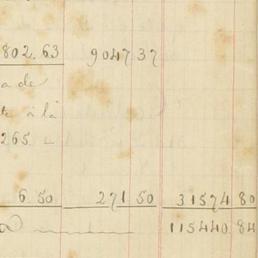 802.63 9047 37
a de
te à là
265
6.50 271 50 31574 80
115440 84